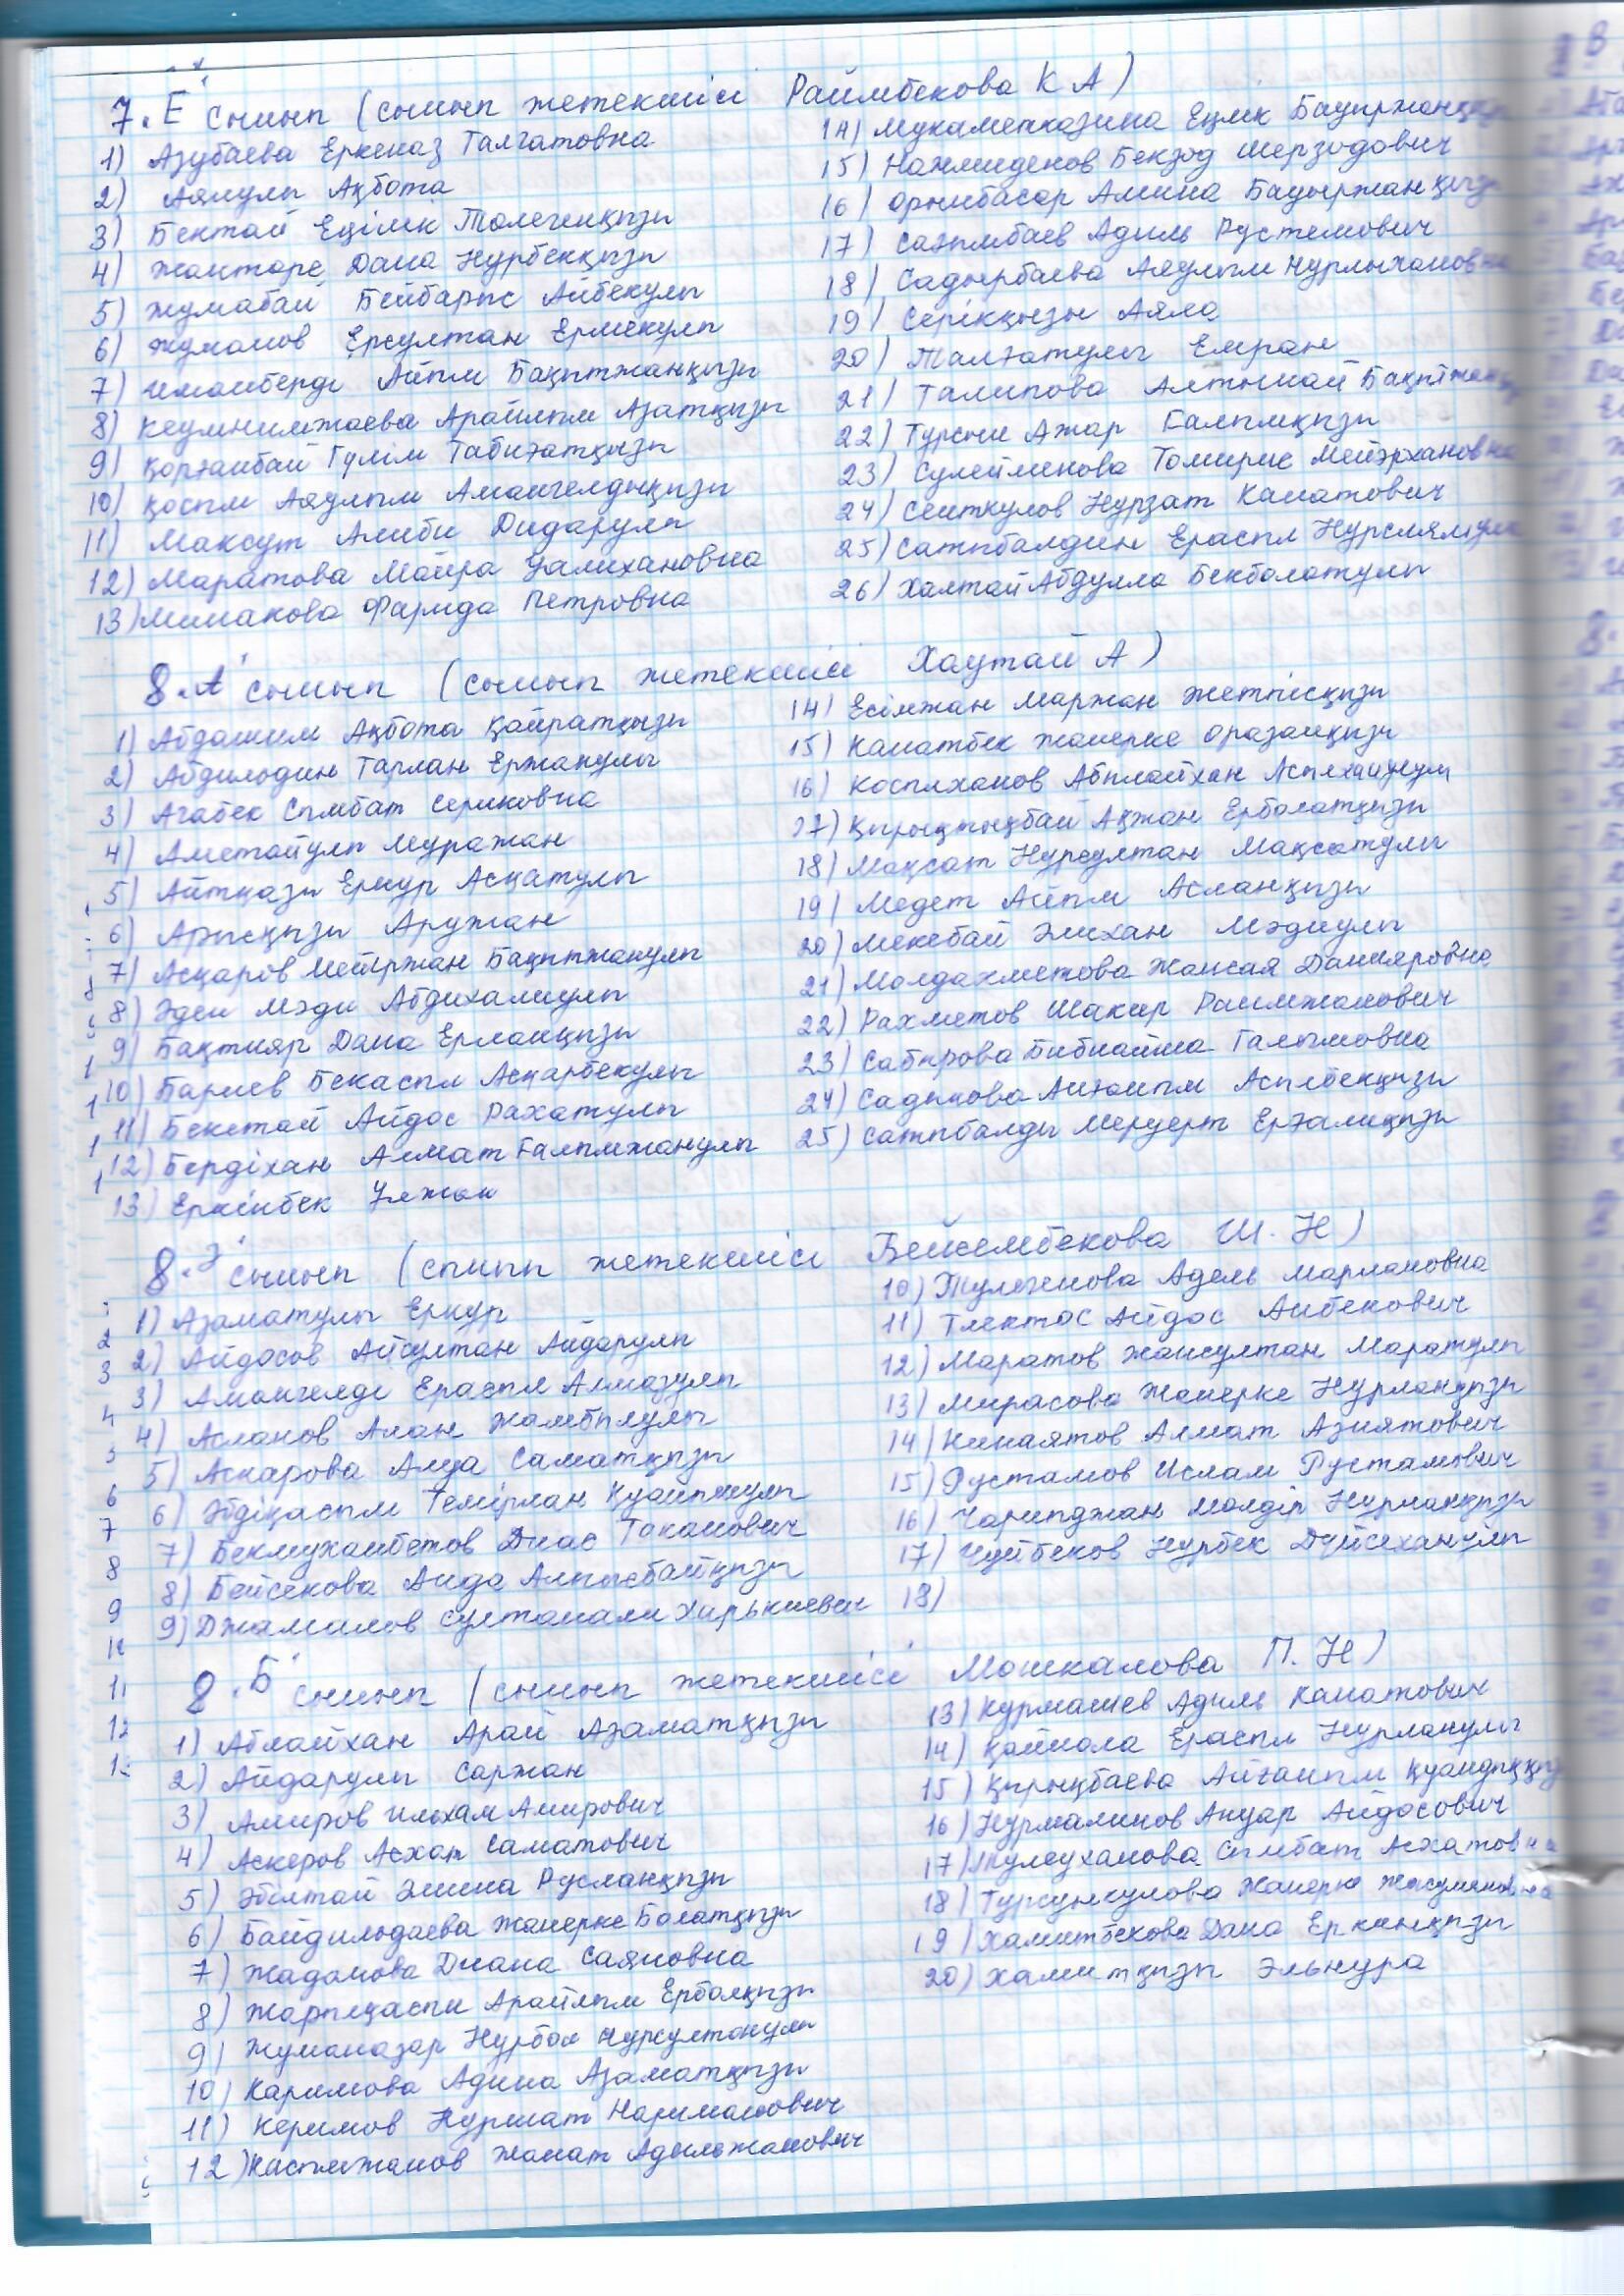 7. "Е" сынып (сынып жетекшісі Раймбекова К А)
1) Азубаева Еркеназ Талгатовна
2) Аянулы Ақбота
3) Бектай Еңілік Төлегенқызы
4) Жантөре Дана Нұрбекқызы
5) Жумабай Бейбарыс Айбекулы
6) Жуманов Ерсултан Ермекулы
7) Иманберді Айым Бақытжанқызы
8) Кеумнимжаева Арайлым Азатқызы
9) Қорғанбай Гүлім Табиғатқызы
10) Қосым Аяулым Амангелдықызы
11) Максут Алиби Дидарулы
12) Маратова Майра Уалихановна
13) Минакова Фарида Петровна
14) Мукаметказина Еңлік Бауыржанқ
15) Нажмиденов Бекзод Шерзодович
16) Орынбасар Амина Бауыржанқызы
17) Сағымбаев Адиль Рустемович
18) Садырбаева Аяулым Нурлыхановна
19) Серікқызы Аяла
20) Талғатулы Емран
21) Талипова Алтынай Бақытжан
22) Турсын Ажар Ғалымқызы
23) Сулейменова Томирис Мейрхановна
24) Сеиткулов Нұрзат Канатович
25) Сатыбалдин Ерасыл Нурсиялұлы
26) Халтай Абдулла Бекболатулы
8. "А" сынып (сынып жетекшісі Хаутай А)
1) Абдашим Ақбота Қайратқызы
2) Абдильдин Тарлан Ержанулы
3) Агабек Сымбат Сериковна
4) Аметайулы Муражан
5) Айтқазы Ернұр Асқатулы
6) Арысқызы Аружан
7) Асқаров Мейіржан Бақытжанулы
8) Әден Мәди Абдихалиулы
9) Бақтияр Дана Ерланқызы
10) Бариев Бекасыл Асқарбекулы
11) Бекетай Айдос Рахатулы
12) Бердіхан Алмат Ғалымжанулы
13) Еркінбек Ұлжан
14) Есімжан Маржан Жетпісқызы
15) Канатбек Жанерке Оразанқызы
16) Косылханов Абылайхан Асылханұлы
17) Қырықтыңбай Ақжан Ерболатқызы
18) Мақсат Нұрсұлтан Мақсатулы
19) Медет Айым Асланқызы
20) Мекебай Әлихан Мәдиулы
21) Молдахметова Жансая Данияровна
22) Рахметов Шакир Раимжанович
23) Сабырова Бибиайша Галымовна
24) Садықова Айғаным Асылбекқызы
25) Сатыбалды Меруерт Ерғалиқызы
8. "Ә" сынып (сынып жетекшісі Бейсембекова Ш. Н)
1) Азаматулы Ернұр
2) Айдосов Айсұлтан Айдарулы
3) Амангелді Ерасыл Алмазулы
4) Асланов Алан Жамбылулы
5) Аскарова Алуа Саматқызы
6) Әбдіқасым Темірлан Қуанышулы
7) Бекмухамбетов Диас Таканович
8) Бейсекова Аида Алпысбайқызы
9) Джамалов Султанали Хирькиевич
10) Жулженова Адель Марлановна
11) Тлектос Айдос Аибекович
12) Маратов Жансултан Маратулы
13) Мирасова Жанерке Нұрланқызы
14) Кинаятов Алмат Азиятович
15) Рустамов Ислам Рустамович
16) Чарипджан Мөлдір Нұрланқызы
17) Чуйбеков Нұрбек Дүйсеханұлы
18)
8. "Б" сынып (сынып жетекшісі Машкалова П. Н)
1) Аблайхан Арай Азаматқызы
2) Айдарулы Саржан
3) Амиров Ильхам Амирович
4) Аскеров Асхат Саматович
5) Әбілтай Элина Русланқызы
6) Байдильдаева Жанерке Болатқызы
7) Жаданова Диана Саяновна
8) Жарылқасын Арайлым Ерболқызы
9) Жуманазар Нұрбол Нұрсұлтанулы
10) Каримова Адина Азаматқызы
11) Керимов Нуршат Нариманович
12) Касымжанов Жанат Адильжанович
13) Курмашев Адиль Канатович
14) Қайнола Ерасыл Нұрланулы
15) Қырықбаева Айғаным Қуандыққыз
16) Нурмалинов Ануар Айдосович
17) Тулеуханова Сымбат Асхатовна
18) Турсункулова Жанерке Жасулановна
19) Хамитбекова Дана Ерканқызы
20) Хамитқызы Эльнура